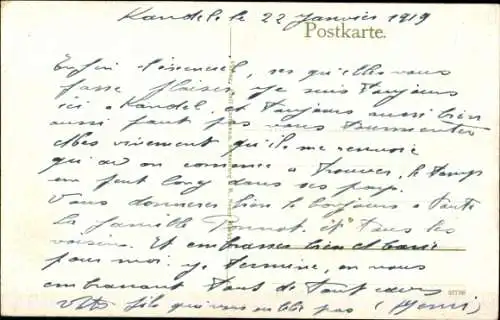 Kandel le 22 Janvier 1919
Postkarte.
Enfin l'essenciel, ses qu'elles vous
fasse plaisir, je suis toujours
ici a Kandel, et toujours aussi bien
aussi faut pas vous tourmenter
vivement qu'il me renvoie
qu'on commence a trouver, le temps
un peut long dans ses pays.
Vous donnerez bien le bonjours a toute
la famille et tous les
voisins. Et embrasser bien
pour moi. je termine, en vous
embrassant tout de tout cœurs
votre fils qui vous oublie pas (Henri)